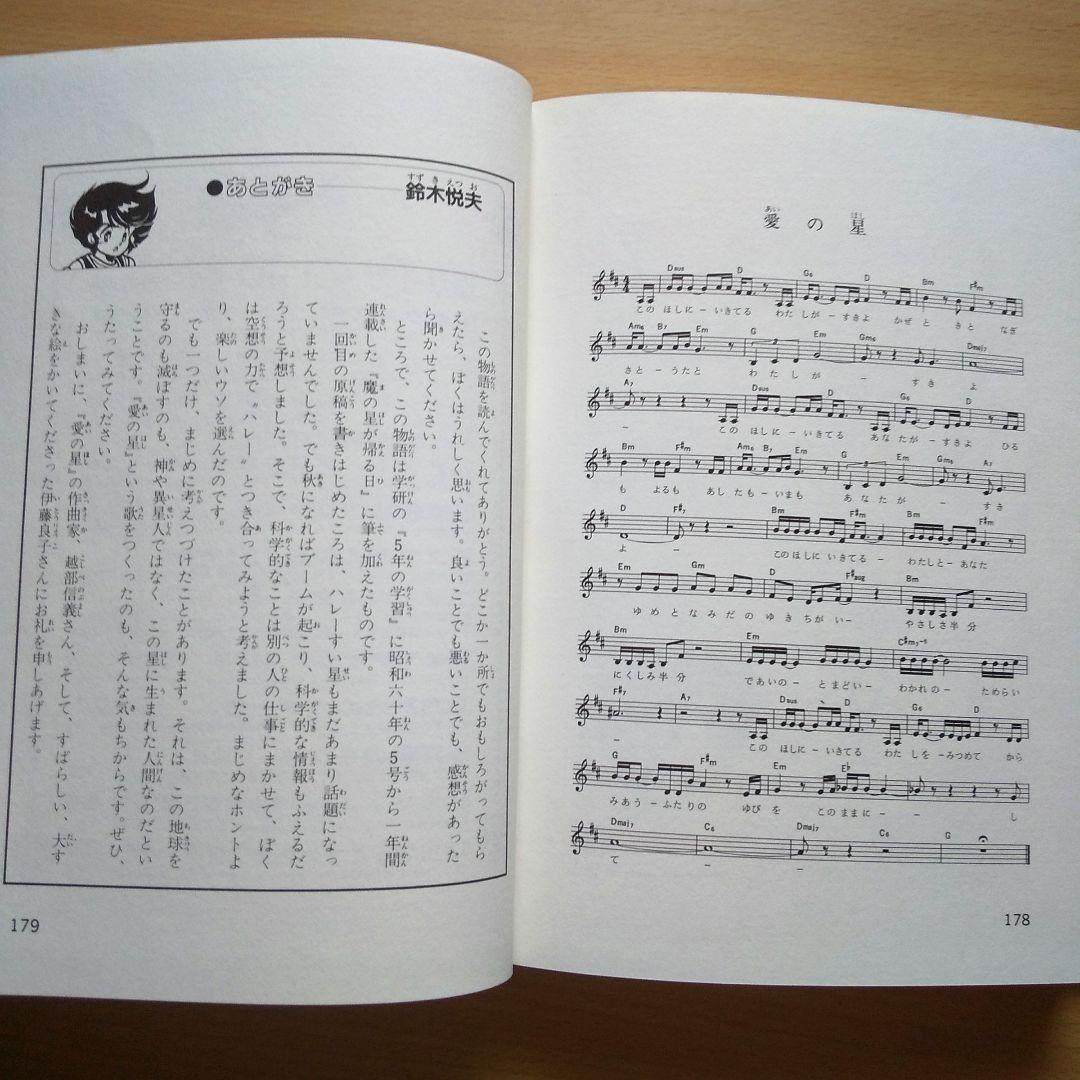 愛の星
あい
ほし
Dsus D G6 D Bm F#m
このほしに－いきてる わたしが－すきよ かぜと きと なぎ
Am6 B7 Em G Em Gm6 Dmaj7
さと－うたと わたしが－ すきよ
A7 Dsus D G6 D
－ このほしに－いきてる あなたが－すきよ ひる
Bm F#m Am6 B7 Em G Em Gm6 A7
も よるもあしたも－いまも あなたが－ す き
D D7 G F#m
よ－ このほしにいきてる－ わたしと－あなた
Em Em7 D F#aug Bm
ゆめとなみだのゆきちがい－ やさしさ半分
Bm Em Em Em C#m7-5
にくしみ半分 であいの－とまどい－ わかれの－ ためらい
F#7 A7 Dsus D G6 D
－ このほしに－いきてる わたしを－みつめて から
G F#m Em E♭
みあう－ふたりの ゆびを このままに－ し
Dmaj7 C6 Dmaj7 C6 G
て － －
178
●あとがき 鈴木悦夫
すず き えつ お
この物語を読んでくれてありがとう。どこか一か所でもおもしろがってもら
えたら、ぼくはうれしく思います。良いことでも悪いことでも、感想があった
ら聞かせてください。
ところで、この物語は学研の『5年の学習』に昭和六十年の5号から一年間
連載した『魔の星が帰る日』に筆を加えたものです。
一回目の原稿を書きはじめたころは、ハレーすい星もまだあまり話題になっ
ていませんでした。でも秋になればブームが起こり、科学的な情報もふえるだ
ろうと予想しました。そこで、科学的なことは別の人の仕事にまかせて、ぼく
は空想の力で〝ハレー〟とつき合ってみようと考えました。まじめなホントよ
り、楽しいウソを選んだのです。
でも一つだけ、まじめに考えつづけたことがあります。それは、この地球を
守るのも滅ぼすのも、神や異星人ではなく、この星に生まれた人間なのだとい
うことです。『愛の星』という歌をつくったのも、そんな気もちからです。ぜひ、
うたってみてください。
おしまいに、『愛の星』の作曲家、越部信義さん、そして、すばらしい、大す
きな絵をかいてくださった伊藤良子さんにお礼を申しあげます。
179